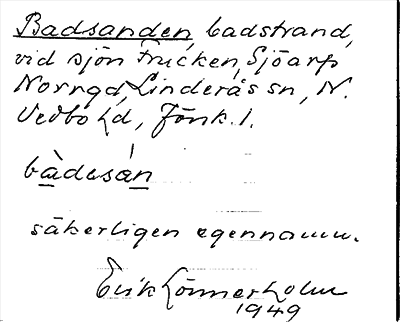 Badsanden, badstrand,
vid sjön Frucken, Sjöarp
Norrgd, Linderås sn, N.
Vedbo hd, Jönk. l.
bàdesán
säkerligen egennamn.
Erik Lönnerholm
1949